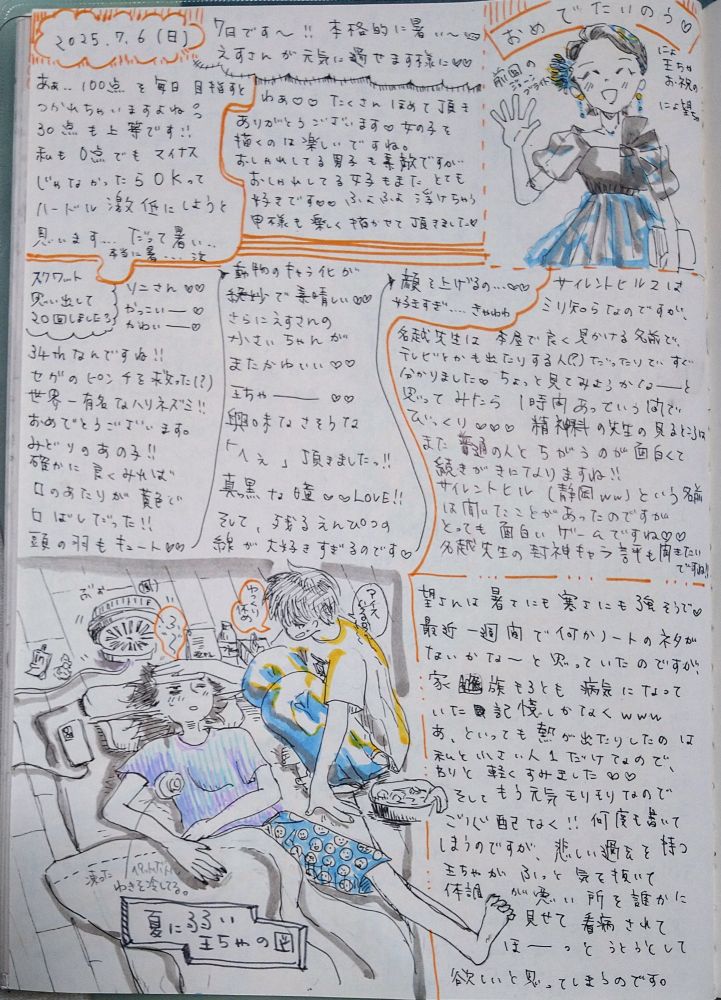 2025.7.6(日)
7日です〜!! 本格的に暑い〜♡
えすさんが元気に過せます様に♡♡
おめでたいのう♡
前回の
ジューン
ブライド
にょ
王ちゃ
お祝の
にょ望ちゃ
あぁ..100点を毎日目指すと
つかれちゃいますよね。
30点も上等です!!
私も0点でもマイナス
じゃなかったらOKって
ハードル激低にしようと
思います... だって暑い..
本当に暑...
わぁ♡♡たくさんほめて頂き
ありがとうございます♡女の子を
描くのは楽しいですね。
おしゃれしてる男子も素敵ですが
おしゃれしてる女子もまたとても
好きです♡♡ふよふよ浮けちゃう
甲様も楽しく描かせて頂きました♡
スクワット
思い出して
20回しました3
ソニさん♡♡
かっこいー♡
かわいー♡
34才なんですね!!
セガのピンチを救った(?)
世界一有名なハリネズミ!!
おめでとうございます。
みどりのあの子!!
確かに良くみれば
口のあたりが黄色で
口ばしだった!!
頭の羽もキュート♡♡
動物のキャラ化が
絶妙で素晴しい♡♡
さらにえすさんの
小さいちゃんが
またかわいい♡♡
王ちゃ――♡♡
興味なさそうな
「へぇ」頂きましたっ!!
真っ黒な瞳♡♡LOVE!!
そして、残るえんぴつの
線が大好きすぎるのです♡
顔を上げるの...♡♡
好きすぎ...きゃわわ
サイレントヒル2は
ミリ知らなのですが、
名越先生は本屋で良く見かける名前で、
テレビとかも出たりする人(?)だったりで、すぐ
分かりました♡ ちょっと見てみようかな――と
思ってみたら1時間あっという間で
びっくり♡♡♡ 精神科の先生の見るところは
また普通の人とちがうのが面白くて
続きがきになりますね!!
サイレントヒル(静岡ww)という名前
は聞いたことがあったのですが
とっても面白いゲームですね♡♡
名越先生の封神キャラ評も聞きたい
ですね!!
望さんは暑さにも寒さにも強そうで♡
最近一週間で何かノートのネタが
ないかな〜と思っていたのですが
家族もろとも病気になって
いた記憶しかなくwww
あ、といっても熱が出たりしたのは
私と小さい人1だけなので
わりと軽くすみました♡♡
そしてもう元気モリモリなので
ご心配なく!! 何度も書いて
しまうのですが、悲しい過去を持つ
王ちゃがふっと気を抜いて
体調が悪い所を誰かに
見せて看病されて
ほ――っとうとうとして
欲しいと思ってしまうのです。
ぶぉー
ふー
ゆっくり
休め
アイス
凍った
ペットボトルで
わきを冷してる。
夏に弱い
王ちゃの図